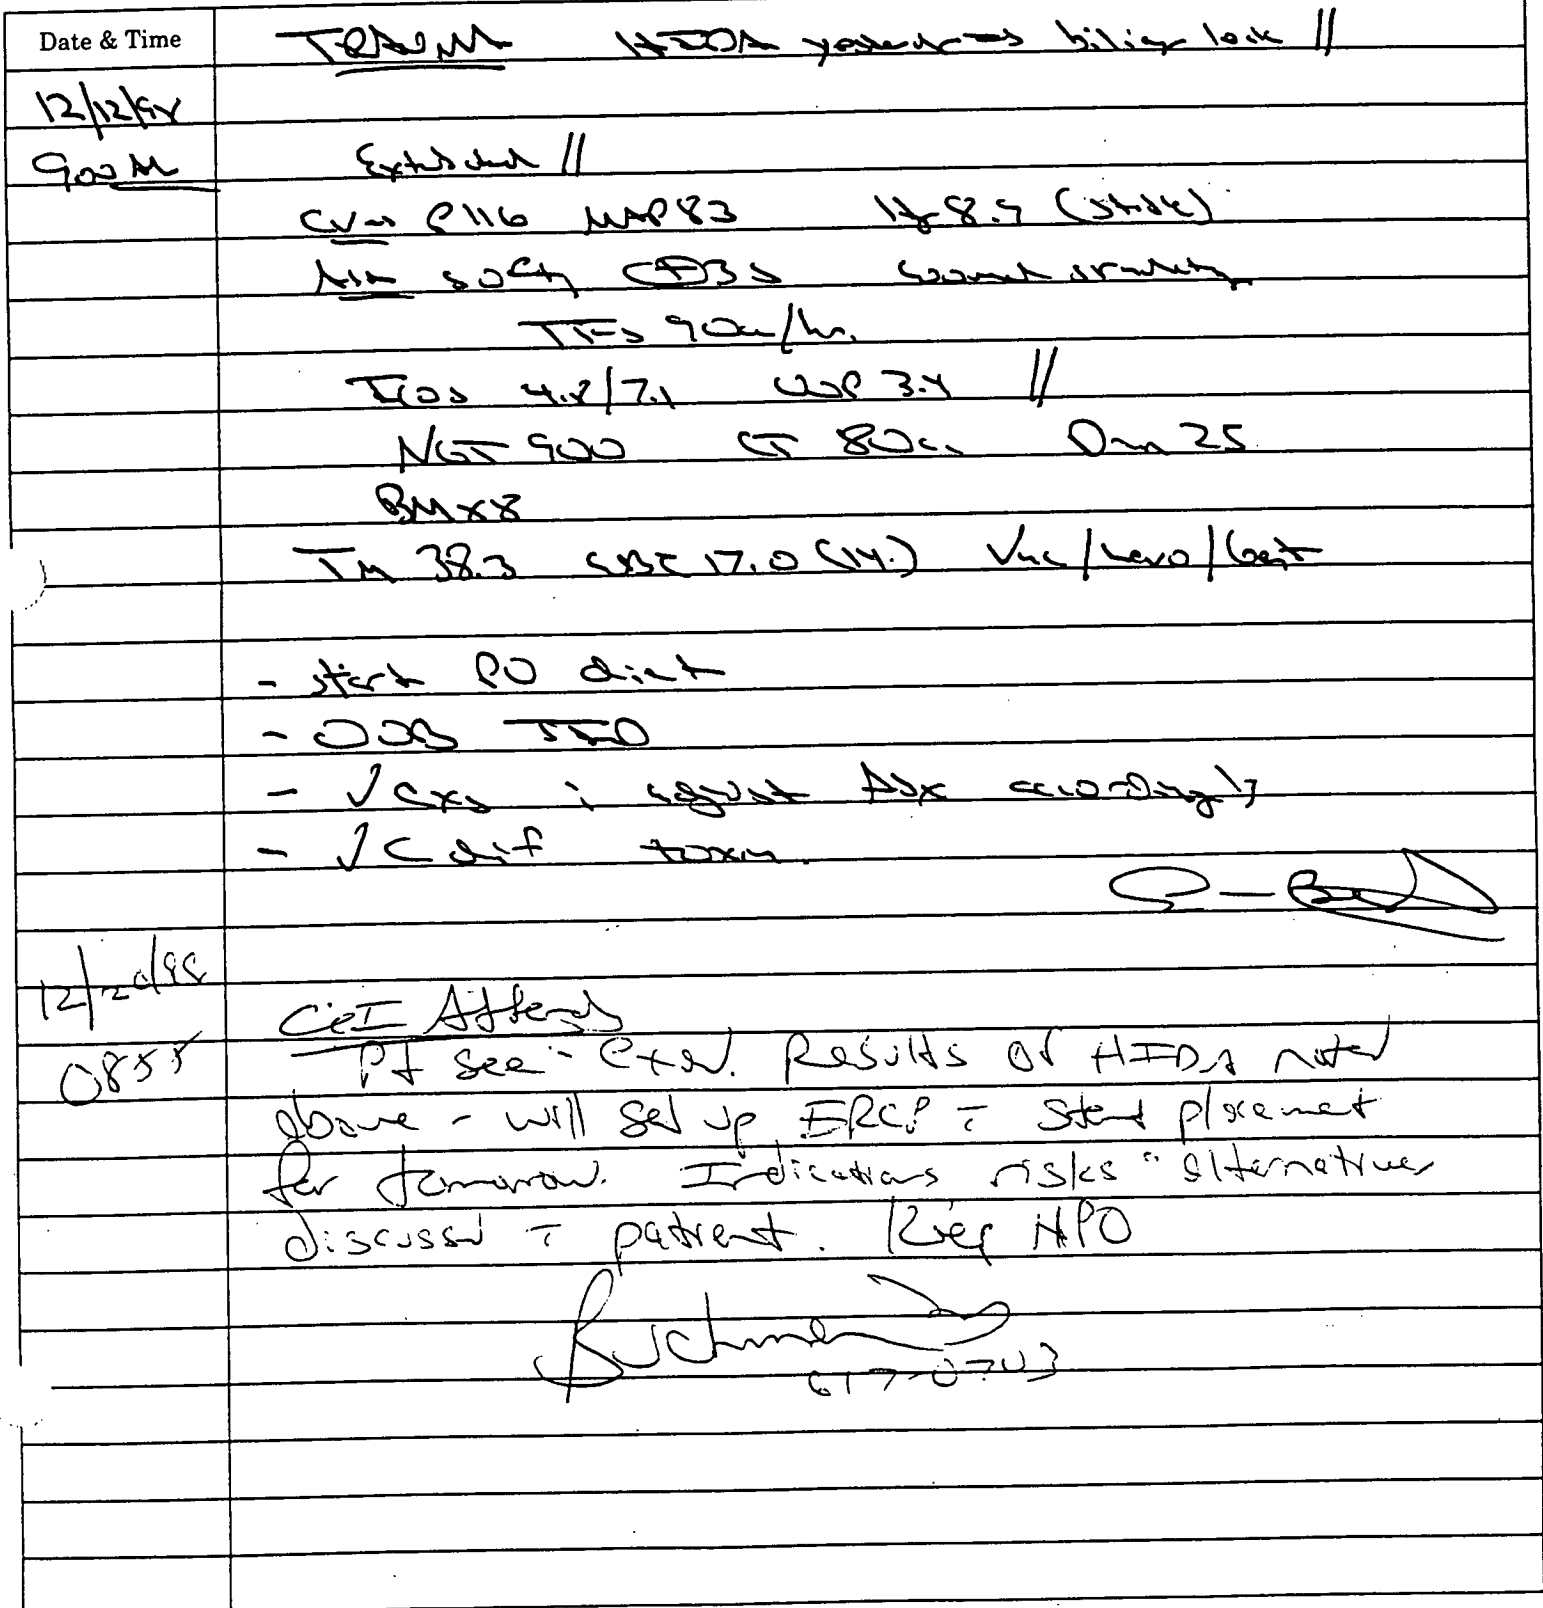 Date & Time
TRAUMA HIDA yesterday → biliary leak //
12/12/98
900 Extubated //
CV → P116 MAP 83 Hg 8.9 (stable)
Abd soft ⊕BS
TFs 90cc/hr.
I/Os 4.8/7.1 UOP 3.4 //
NGT 900 CT 80cc 25
BM x 8
TM 38.3 WBC 17.0 (14.) Vnc/Levo/Gent
- start PO diet
- OOB TID
- √ Cxs ; adjust Abx accordingly
- √ C dif toxin.
0855 GI Attend
Pt see - Exam. Results of HIDA noted
above - will set up ERCP c̄ stent placement
for tomorrow. Indications risks " alternatives
discussed c̄ patient. Keep NPO
617-0703